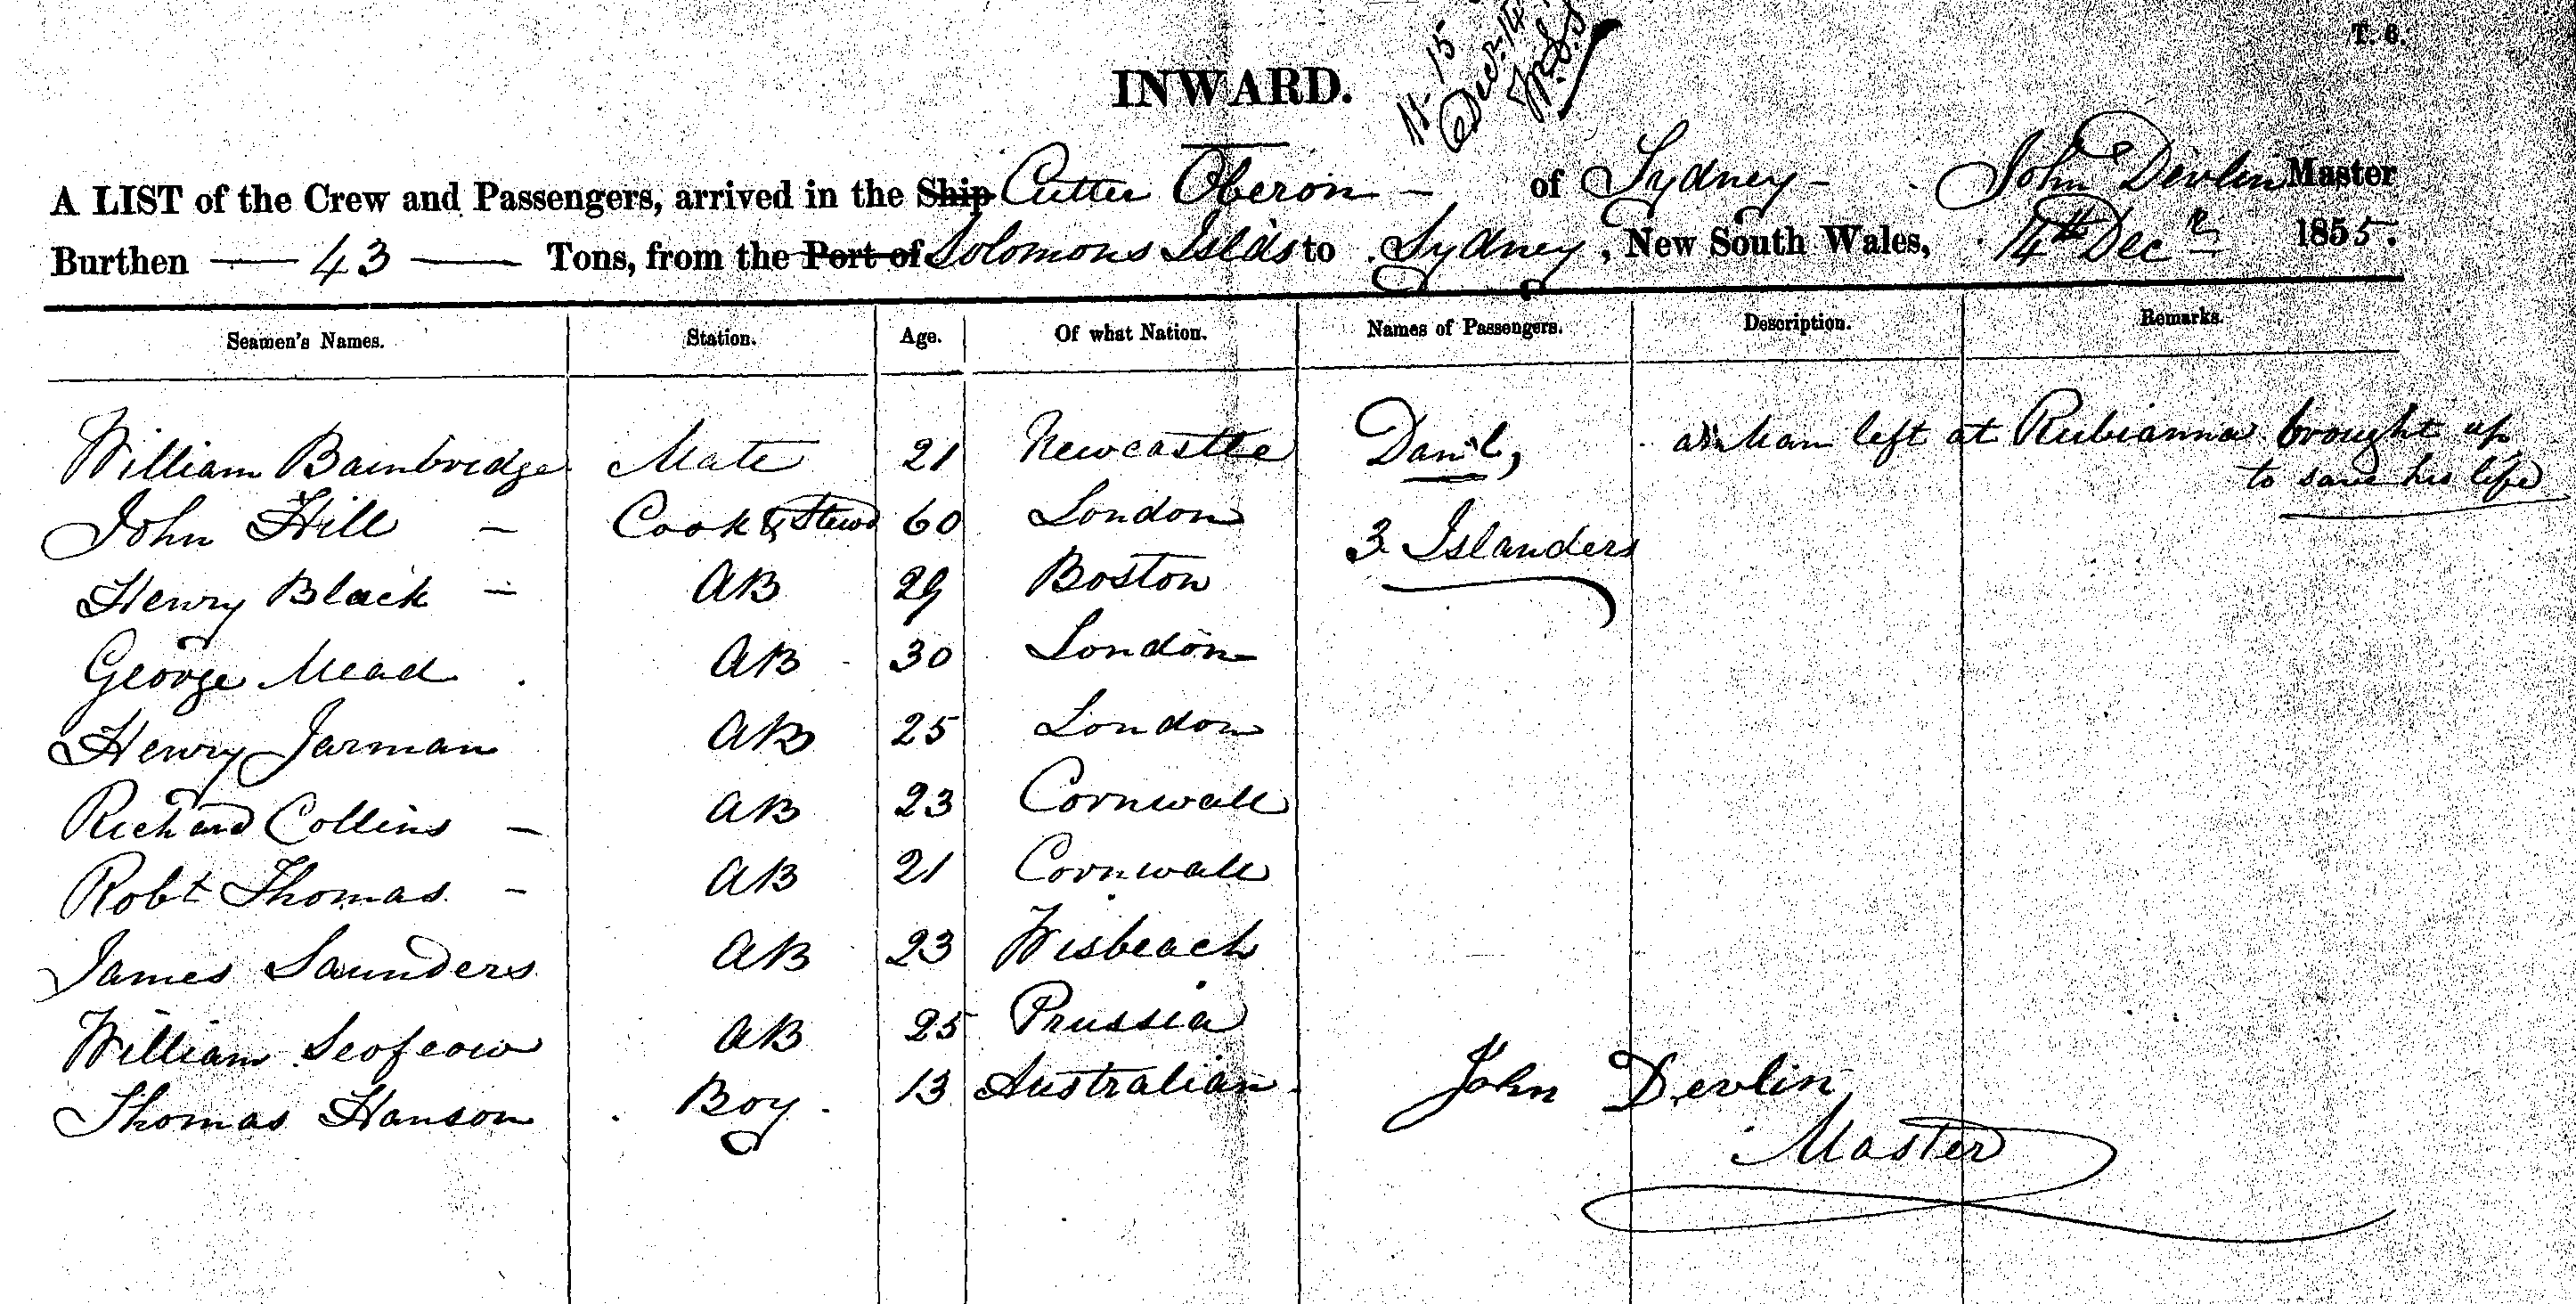 T. 6.
11-15
Decr. 14
INWARD.
A LIST of the Crew and Passengers, arrived in the Ship Cutter Oberon - of Sydney - John Devlin Master
Burthen — 43 — Tons, from the Port of Solomons Islds to Sydney, New South Wales, 14th Decr 1855.
Seamen's Names. Station. Age. Of what Nation. Names of Passengers. Description. Remarks.
William Bainbridge Mate 21 Newcastle Danl, a man left at Rubianna brought up
to save his life
John Hill - Cook & Stewd 60 London 3 Islanders
Henry Black - AB 29 Boston
George Mead AB 30 London
Henry Jarman AB 25 London
Richard Collins - AB 23 Cornwall
Robt Thomas - AB 21 Cornwall
James Saunders AB 23 Wisbeach
William AB 25 Prussia
Thomas Hanson Boy 13 Australian
John Devlin
Master